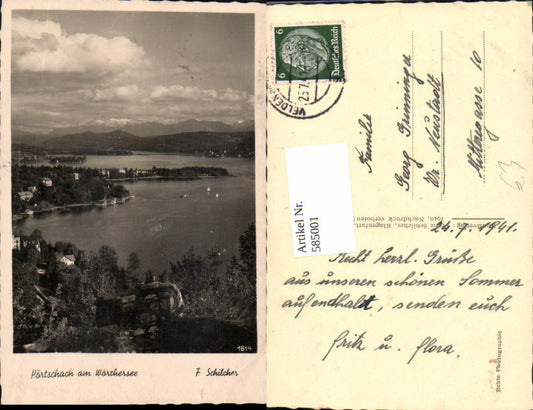 1814
Pörtschach am Wörthersee
F. Schilcher
6 Deutsches Reich 6
VELDEN
23.7.
Artikel Nr.
585001
Familie
Georg
Wr. Neustadt
10
63
Schilcher, Klagenfurt,
1940, Nachdruck verboten
24.7.1941.
Recht herzl. Grüße
aus unseren schönen Sommer
aufendhalt, senden euch
Fritz u. Flora.
Echte Photographie